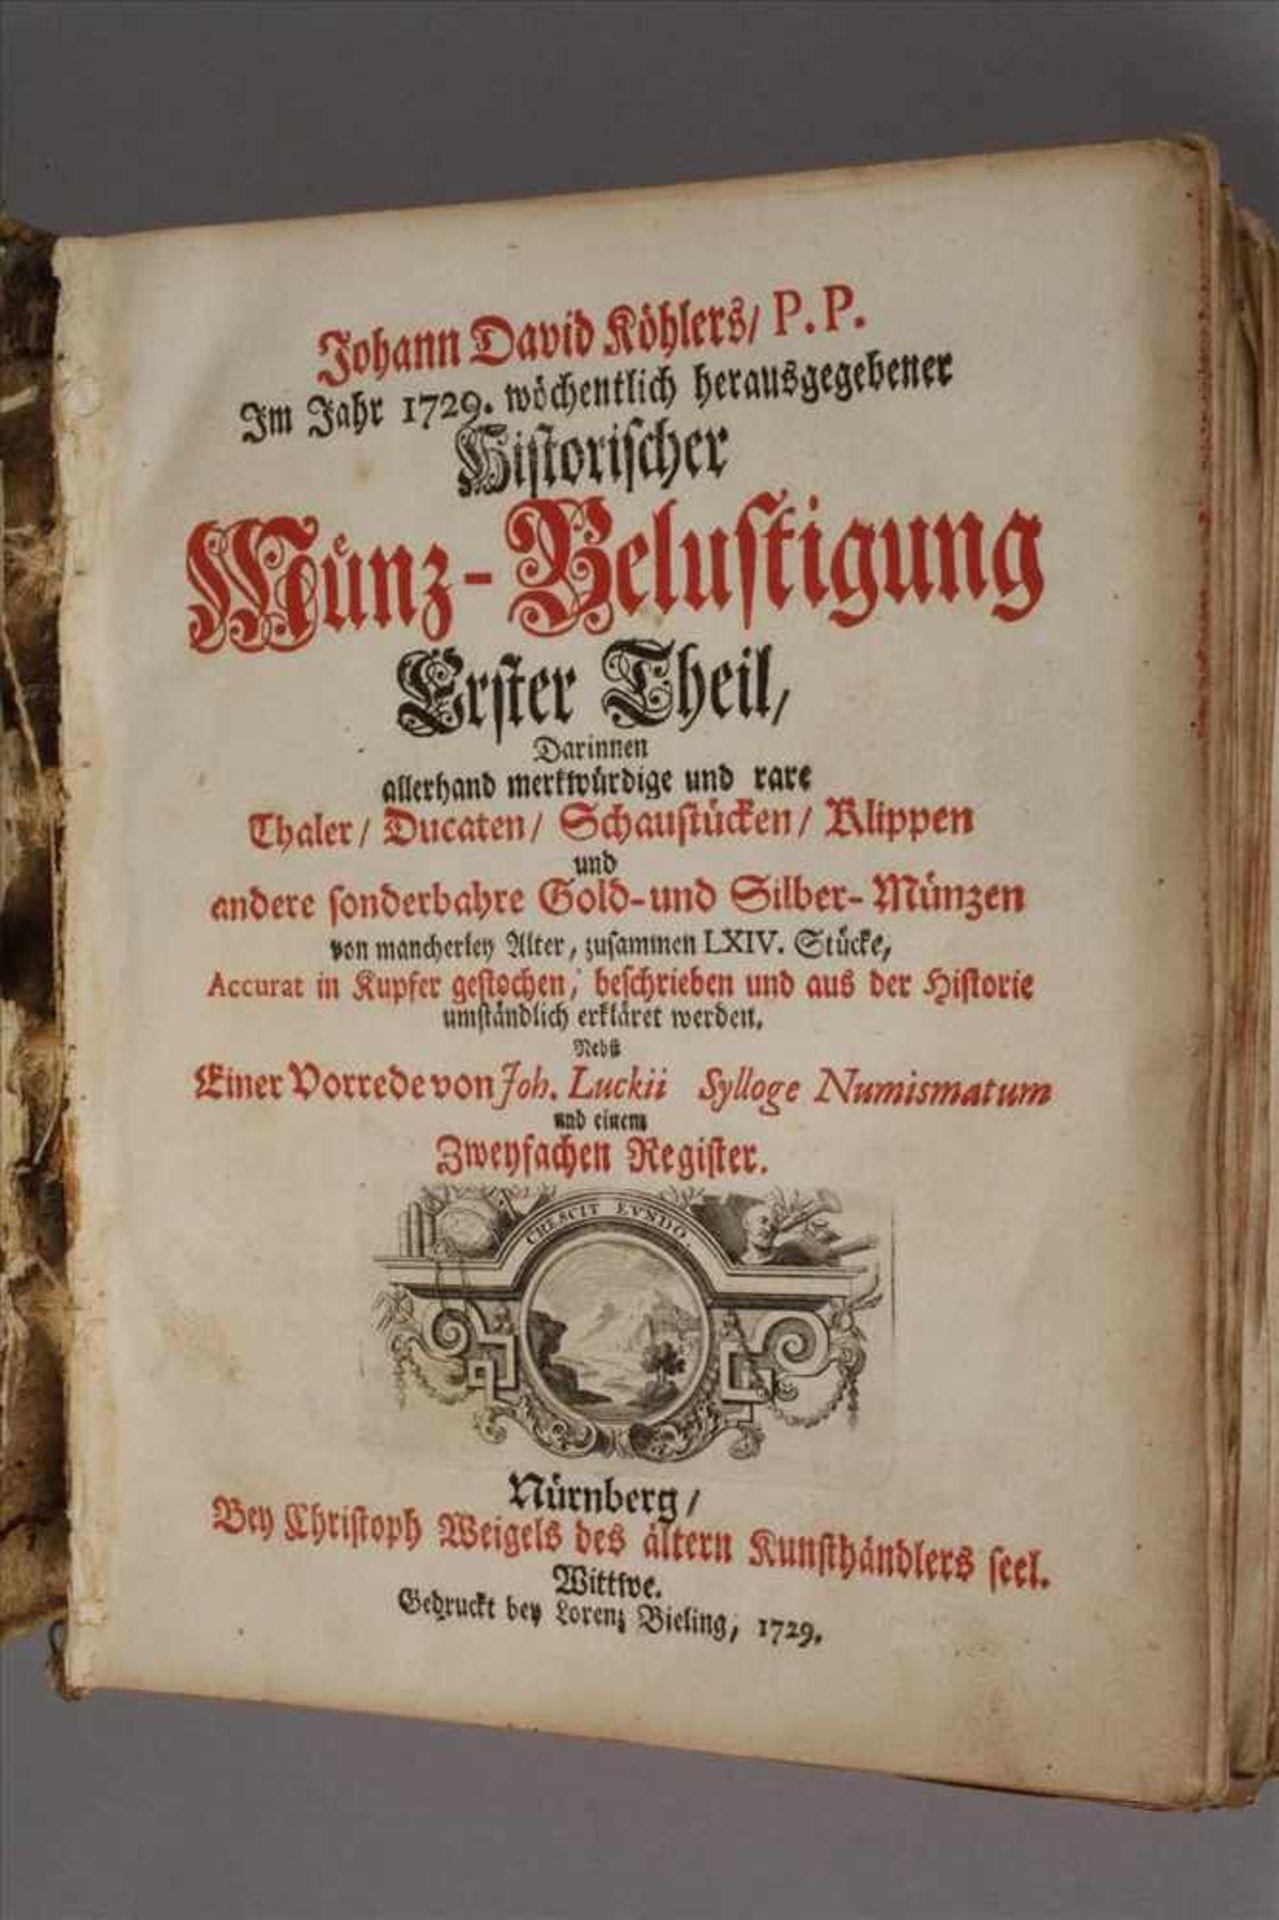 Johann David Köhlers/ P. P.
Im Jahr 1729. wöchentlich herausgegebener
Historischer
Münz-Belustigung
Erster Theil,
Darinnen
allerhand merkwürdige und rare
Thaler/ Ducaten/ Schaustücken/ Klippen
und
andere sonderbahre Gold-und Silber-Münzen
von mancherley Alter, zusammen LXIV. Stücke,
Accurat in Kupfer gestochen, beschrieben und aus der Historie
umständlich erkläret werden.
Nebst
Einer Vorrede von Joh. Luckii Sylloge Numismatum
und einem
Zweyfachen Register.
CRESCIT EVNDO.
Nürnberg/
Bey Christoph Weigels des ältern Kunsthändlers seel.
Wittwe.
Gedruckt bey Lorenz Bieling, 1729.